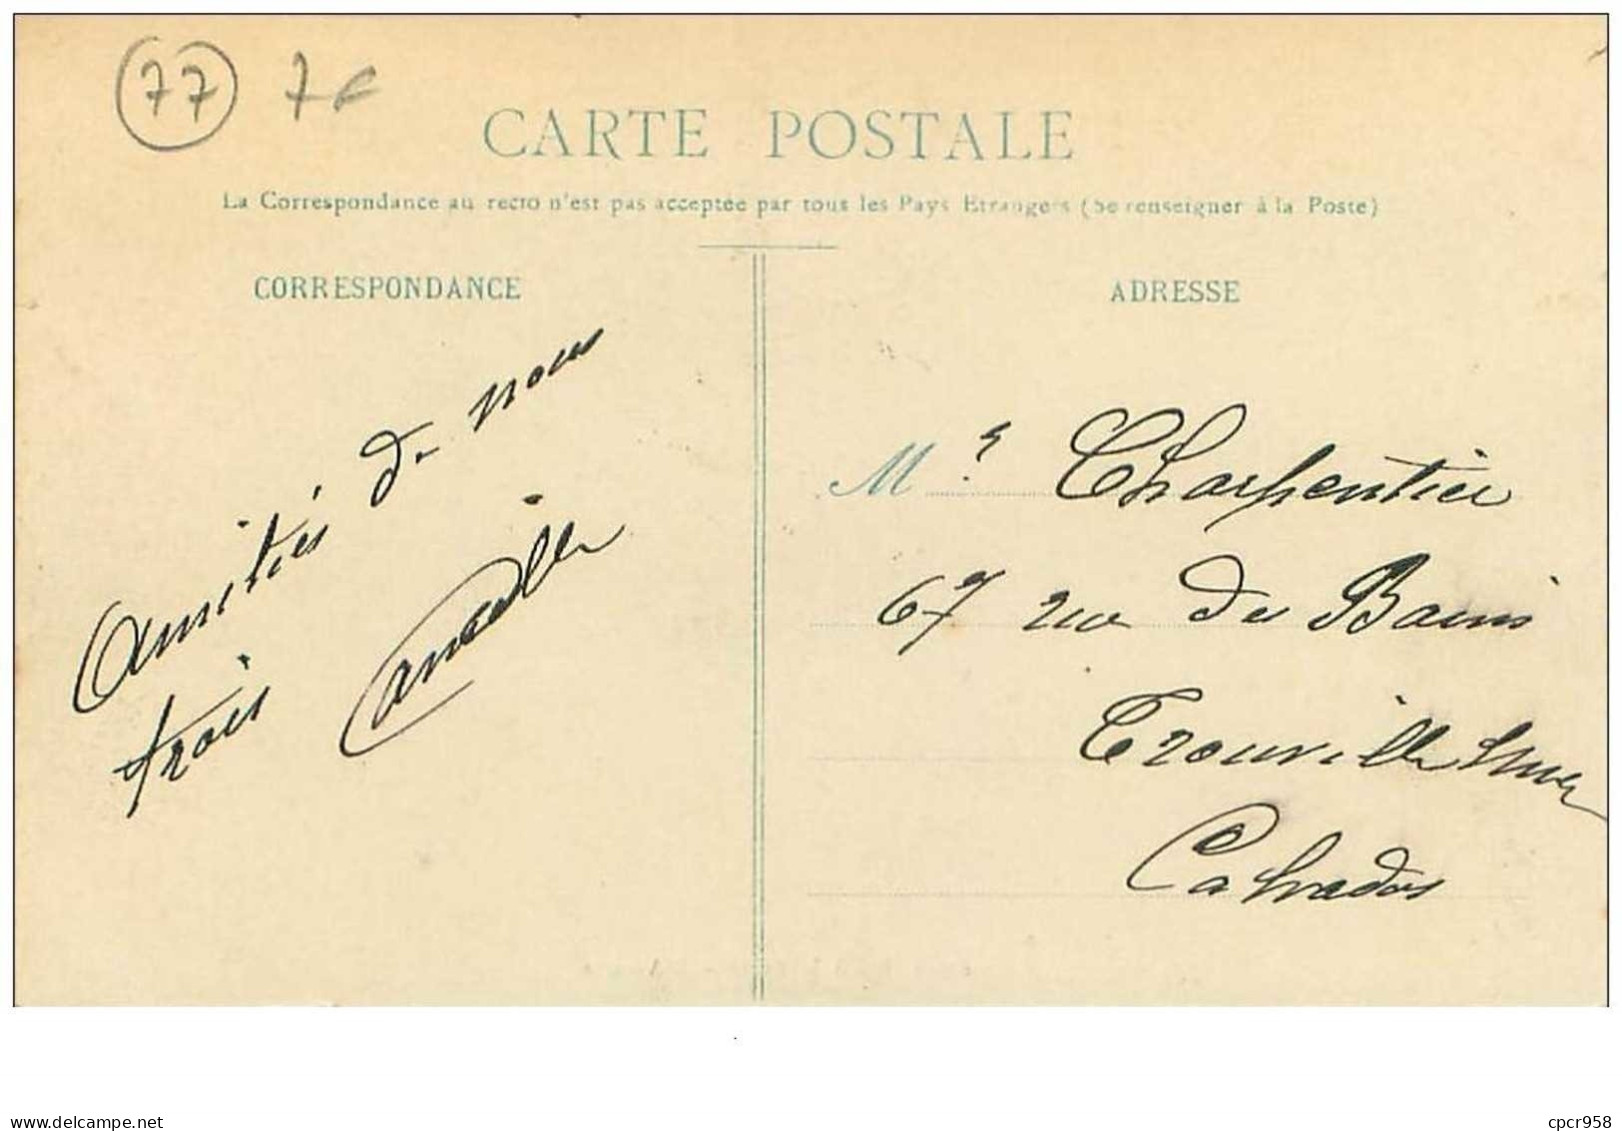 77 7€
CARTE POSTALE
La Correspondance au recto n'est pas acceptée par tous les Pays Etrangers (Se renseigner à la Poste)
CORRESPONDANCE
Amitiés de nous
trois Camille
ADRESSE
Mr Charpentier
67 rue des Bains
Trouville s/mer
Calvados
www.delcampe.net
cpcr958